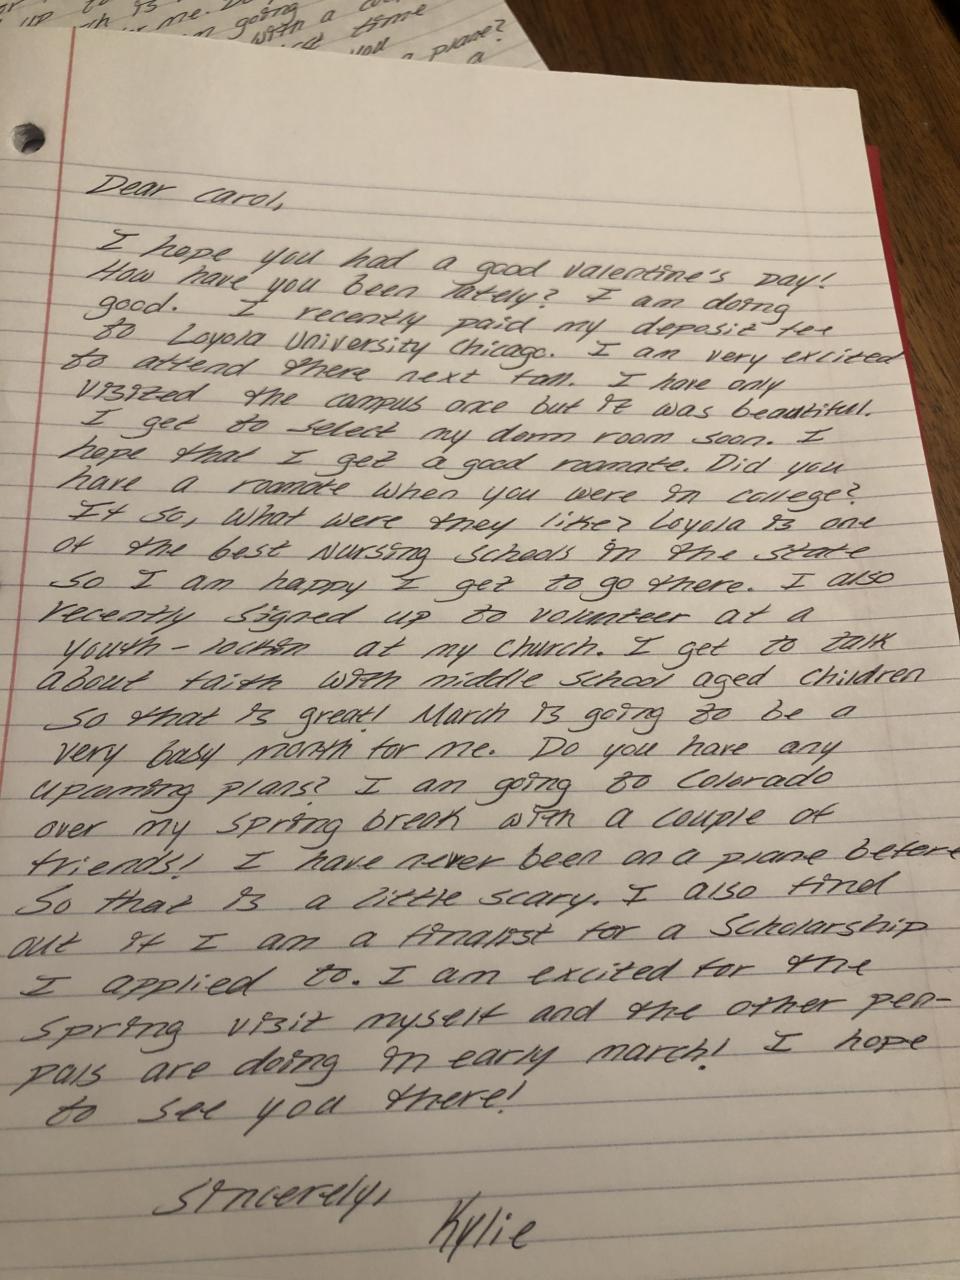 up to
is
me. Do
going
with a
time
you
a plane?
a
Dear Carol,
I hope you had a good Valentine's Day!
How have you been lately? I am doing
good. I recently paid my deposit fee
to Loyola University Chicago. I am very excited
to attend there next fall. I have only
visited the campus once but it was beautiful.
I get to select my dorm room soon. I
hope that I get a good roomate. Did you
have a roomate when you were in college?
If so, what were they like? Loyola is one
of the best Nursing schools in the state
so I am happy I get to go there. I also
recently signed up to volunteer at a
youth-lockin at my church. I get to talk
about faith with middle school aged children
so that is great! March is going to be a
very busy month for me. Do you have any
upcoming plans? I am going to Colorado
over my spring break with a couple of
friends! I have never been on a plane before
so that is a little scary. I also find
out if I am a finalist for a Scholarship
I applied to. I am excited for the
spring visit myself and the other pen-
pals are doing in early march! I hope
to see you there!
Sincerely,
Kylie